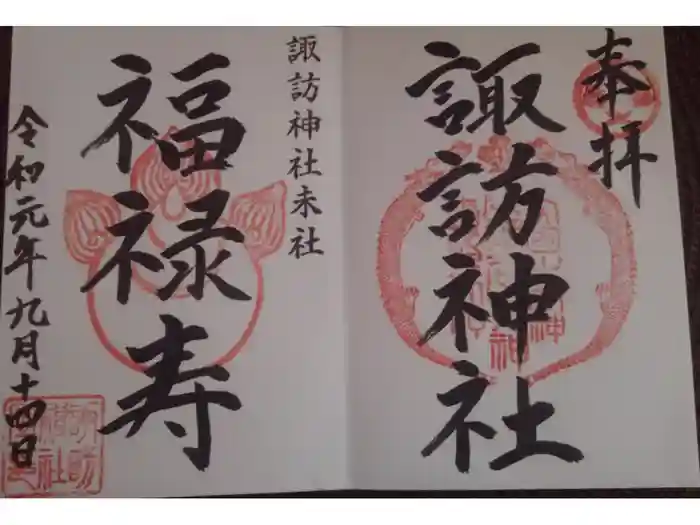 奉拝
諏訪神社
諏訪神社末社
福禄寿
令和元年九月十四日